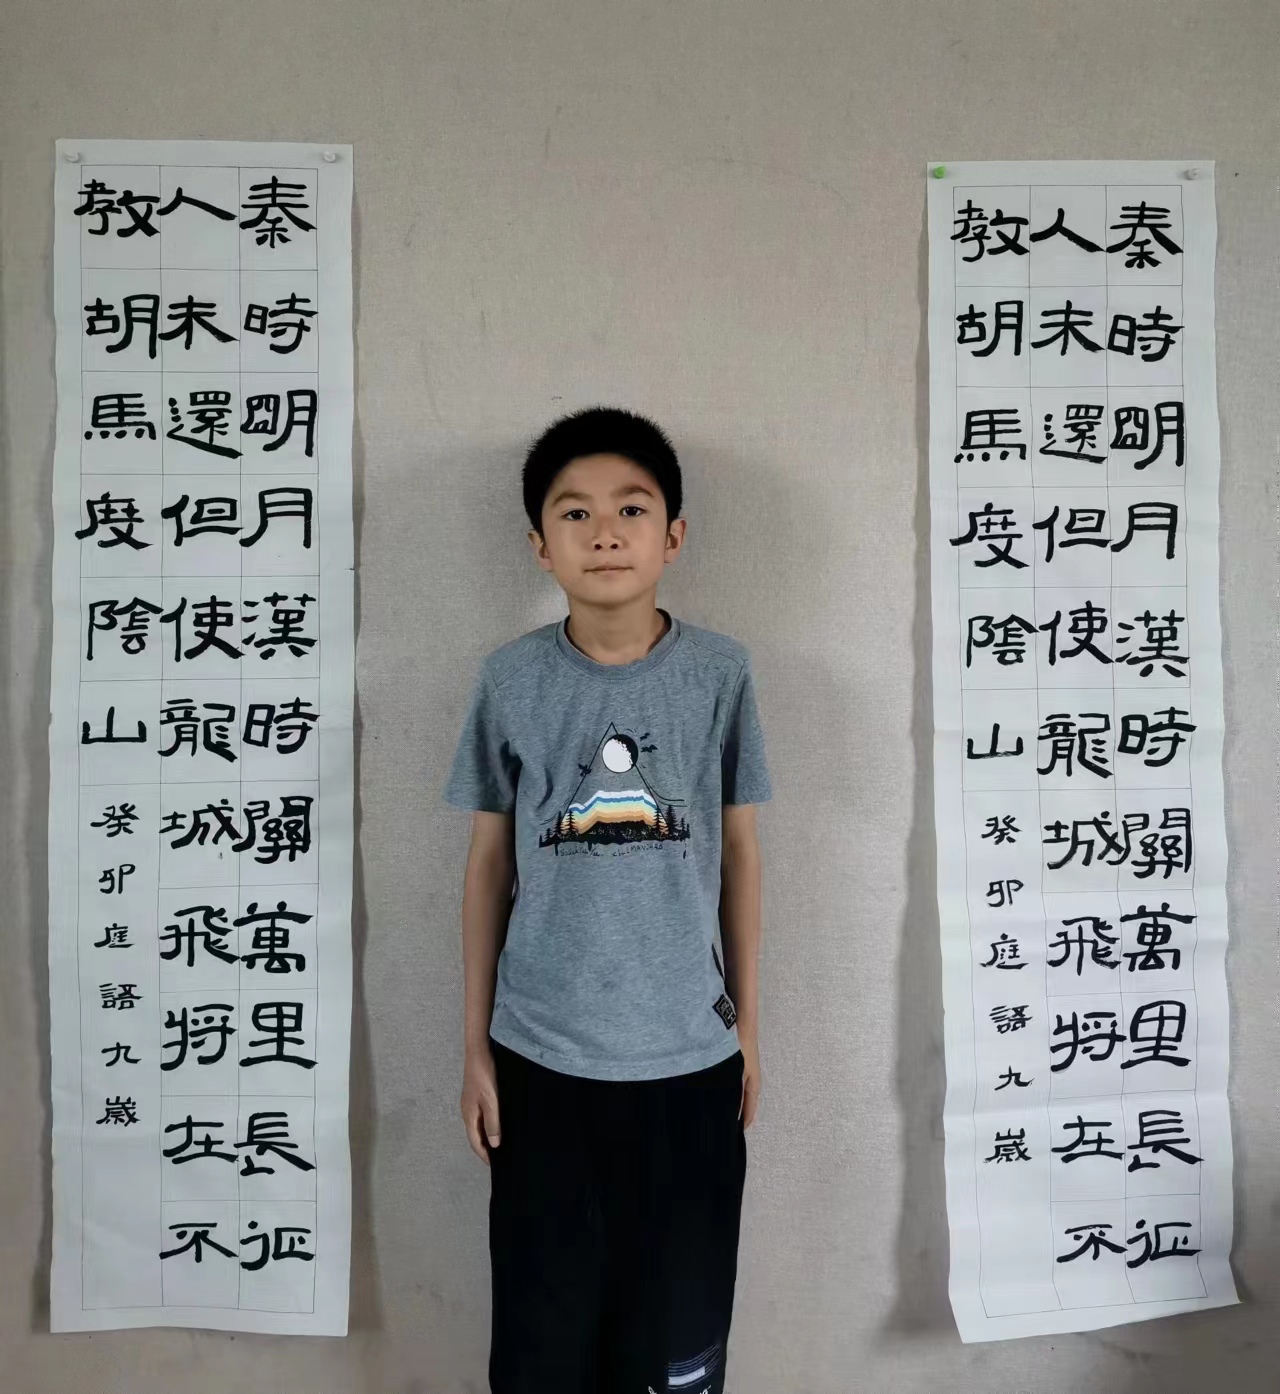 秦時明月漢時關萬里長征
人未還但使龍城飛將在不
教胡馬度陰山
癸卯庭語九歲
秦時明月漢時關萬里長征
人未還但使龍城飛將在不
教胡馬度陰山
癸卯庭語九歲